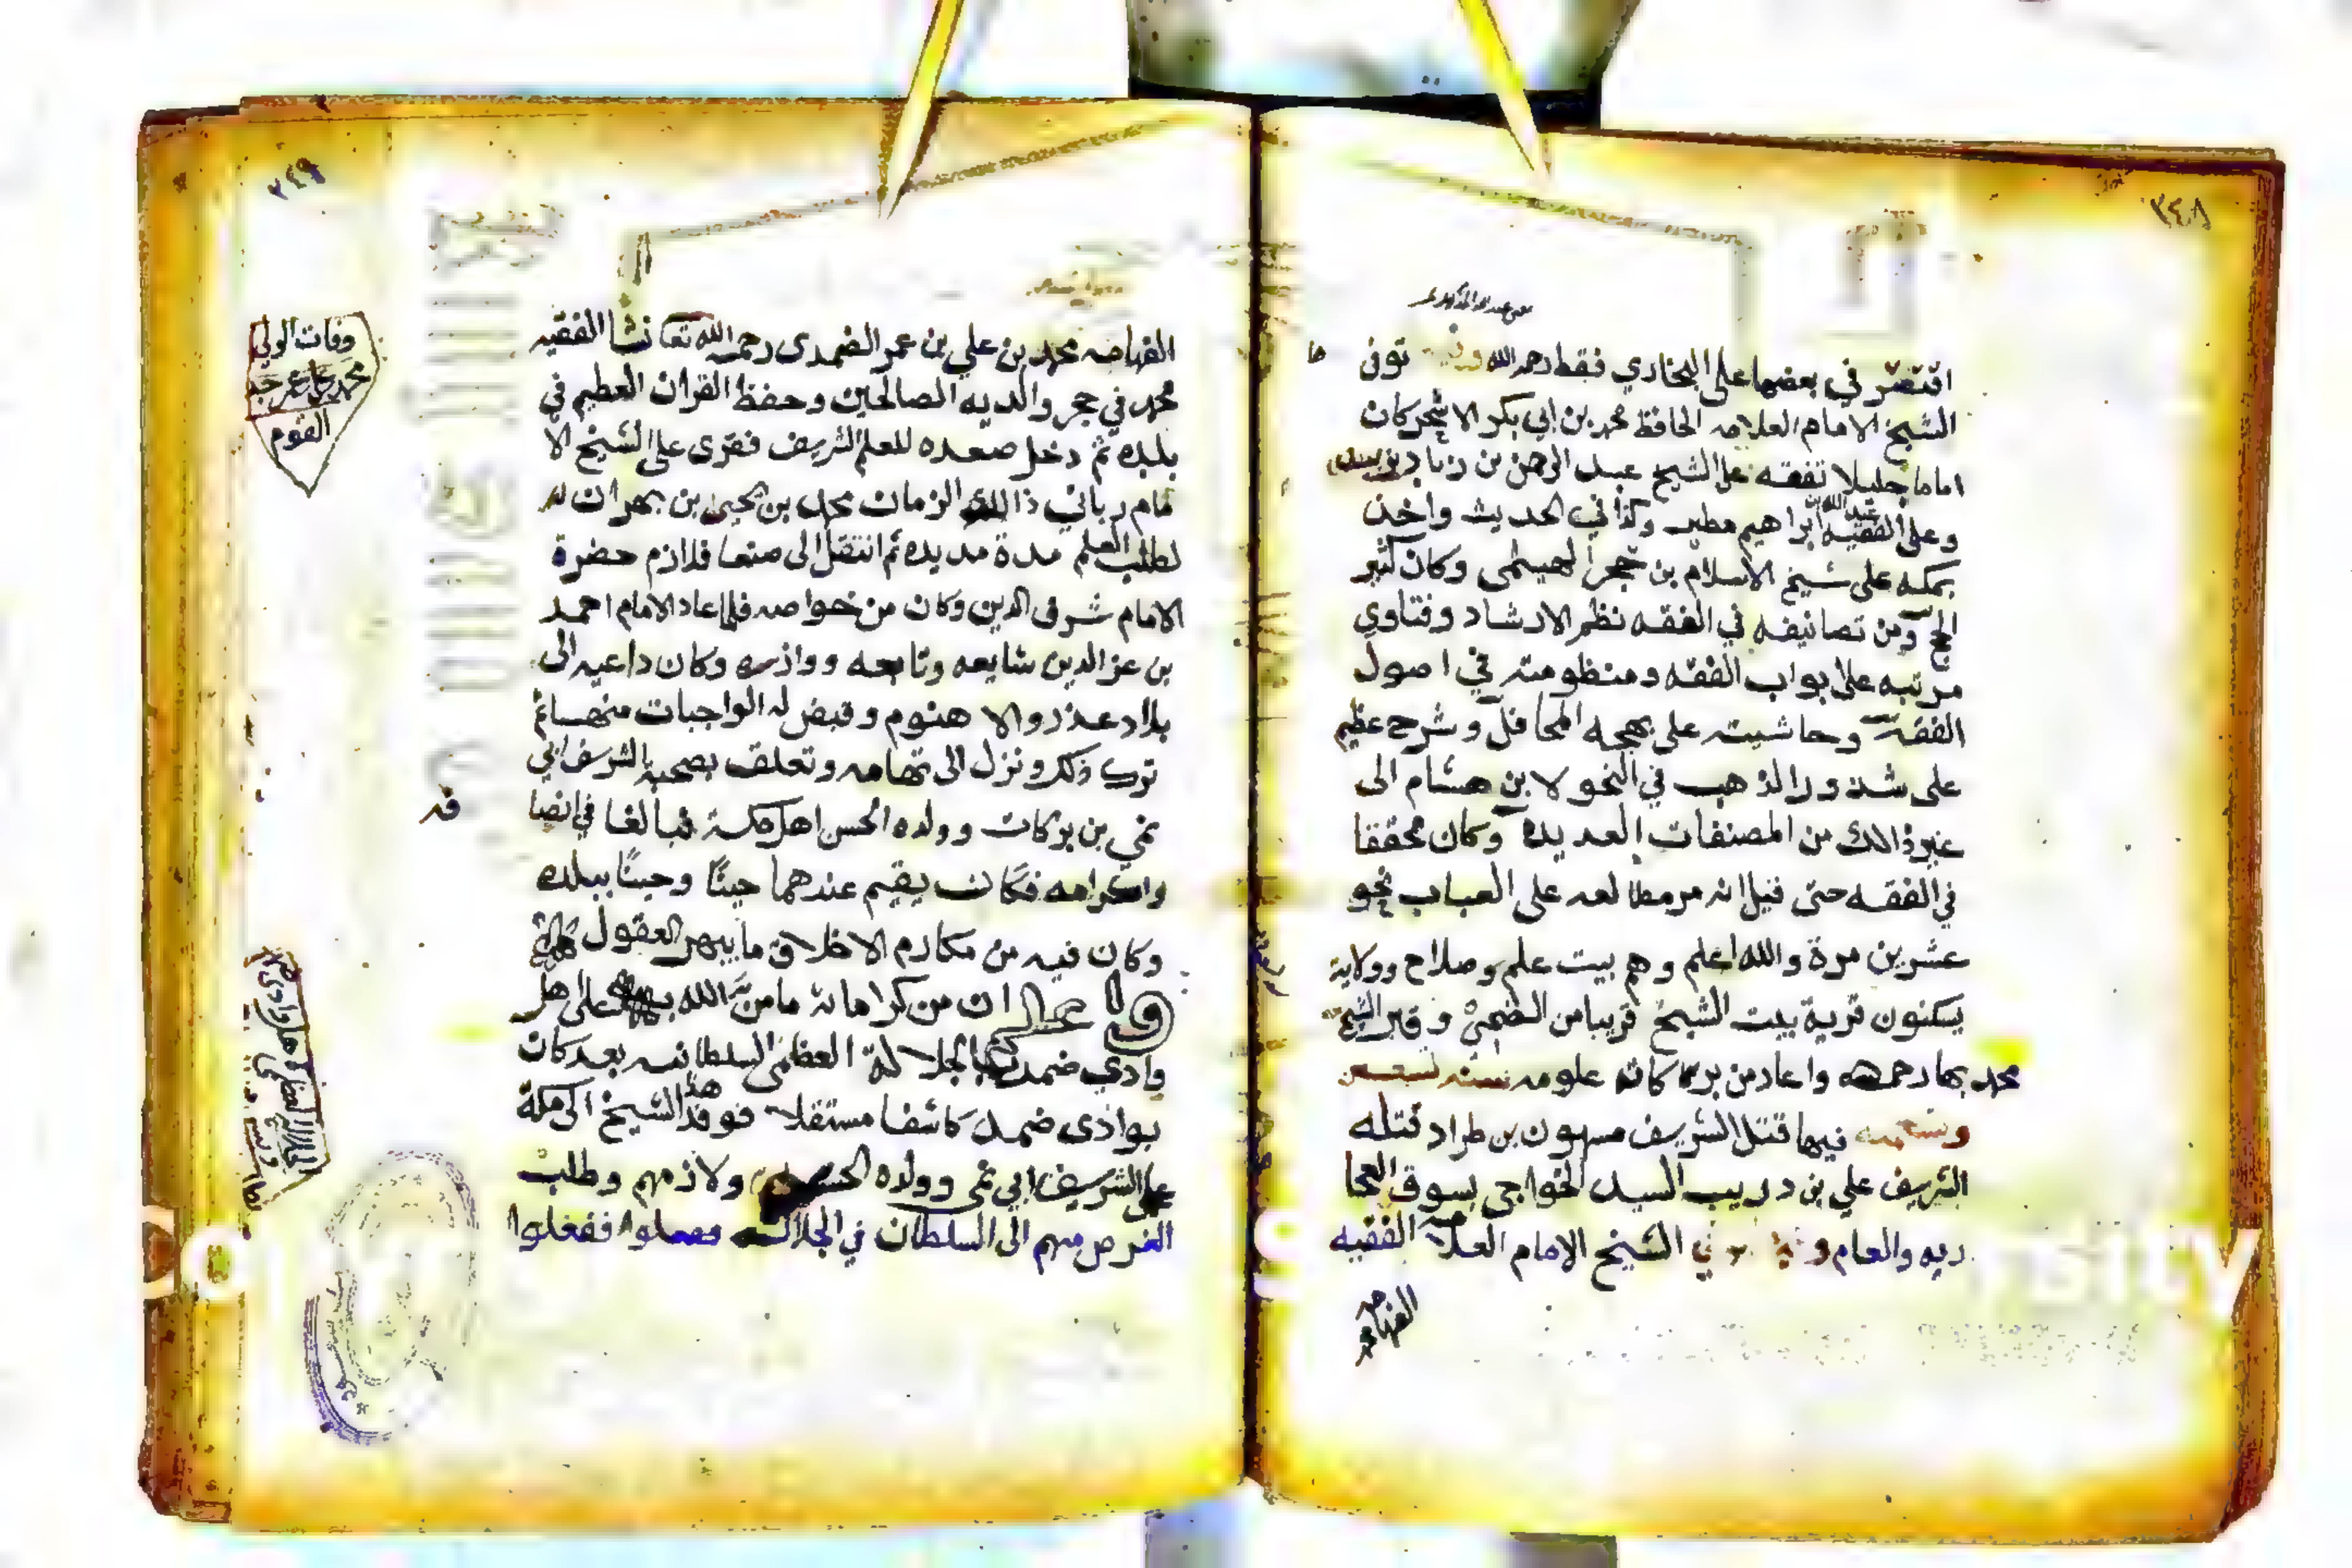 ٣٤٨
اقتصر في بعضها على البخاري فقط رحمه الله وفيه توفى
الشيخ الامام العلامه الحافظ محمد بن ابي بكر الاشخر كان
اماما جليلا تفقه على الشيخ عبد الرحمن بن زياد بزبيد
وعلى الفقيه عبد الله بن ابراهيم مطير وكذا في الحديث واخذ
بمكه على شيخ الاسلام بن حجر الهيتمي وكان كثير
الحج ومن تصانيفه في الفقه نظم الارشاد وفتاوي
مرتبه على ابواب الفقه ومنظومته في اصول
الفقه وحاشيته على بهجه المحافل وشرح عظيم
على شذور الذهب في النحو لابن هشام الى
غير ذالك من المصنفات العديده وكان محققا
في الفقه حتى قيل انه مر مطالعه على العباب نحو
عشرين مرة والله اعلم وهم بيت علم وصلاح وولاية
يسكنون قرية بيت الشيخ قريبا من الضحي وقبر الشيخ
محمد بها رحمه واعاد من بركاته علومه سنه تسعين
وتسعميه فيها قتل الشريف مسهون بن طراد قتله
الشريف علي بن دريب السيد الخواجي بسوق المحا
ديه والعام توفي الشيخ الامام العلا مه الفقيه
الفهامه
٢٤٩
الفهامه محمد بن علي بن عمر الضمدي رحمه الله تعا نشا الفقيه
محمد في حجر والديه الصالحين وحفظ القران العظيم في
بلده ثم دخل صعده للعلم الشريف فقرى على الشيخ الا
مام رباني ذالك الزمان محمد بن يحيى بن بهران
لطلب العلم مدة مديده ثم انتقل الى صنعا فلازم حضرة
الامام شرف الدين وكان من خواصه فلما عاد الامام احمد
بن عز الدين شايعه وتابعه ووازره وكان داعيه الى
بلاد عذر والاهنوم وقبض له الواجبات منهسا ثم
ترك ذلك ونزل الى تهامه وتعلق بصحبة الشريف ابي
نمي بن بركات وولده الحسن اهل مكة فبالغا في انصا
فه
واكرامه فكان يقيم عندهما حينًا وحينًا ببلده
وكان فيه من مكارم الاخلاق ما يبهر العقول
واعلم ان من كراماته ما من الله به على اهل
وادي ضمد بالجلالة العظمى السلطانيه بعد كان
بوادي ضمد كاشفا مستقلا فوفد هذا الشيخ الى مكة
على الشريف ابي نمى وولده الحسن ولازمهم وطلب
الغرض منهم الى السلطان في الجلاله ففعلوا
وفات الولي
محمد بن علي عمر جد
القوم